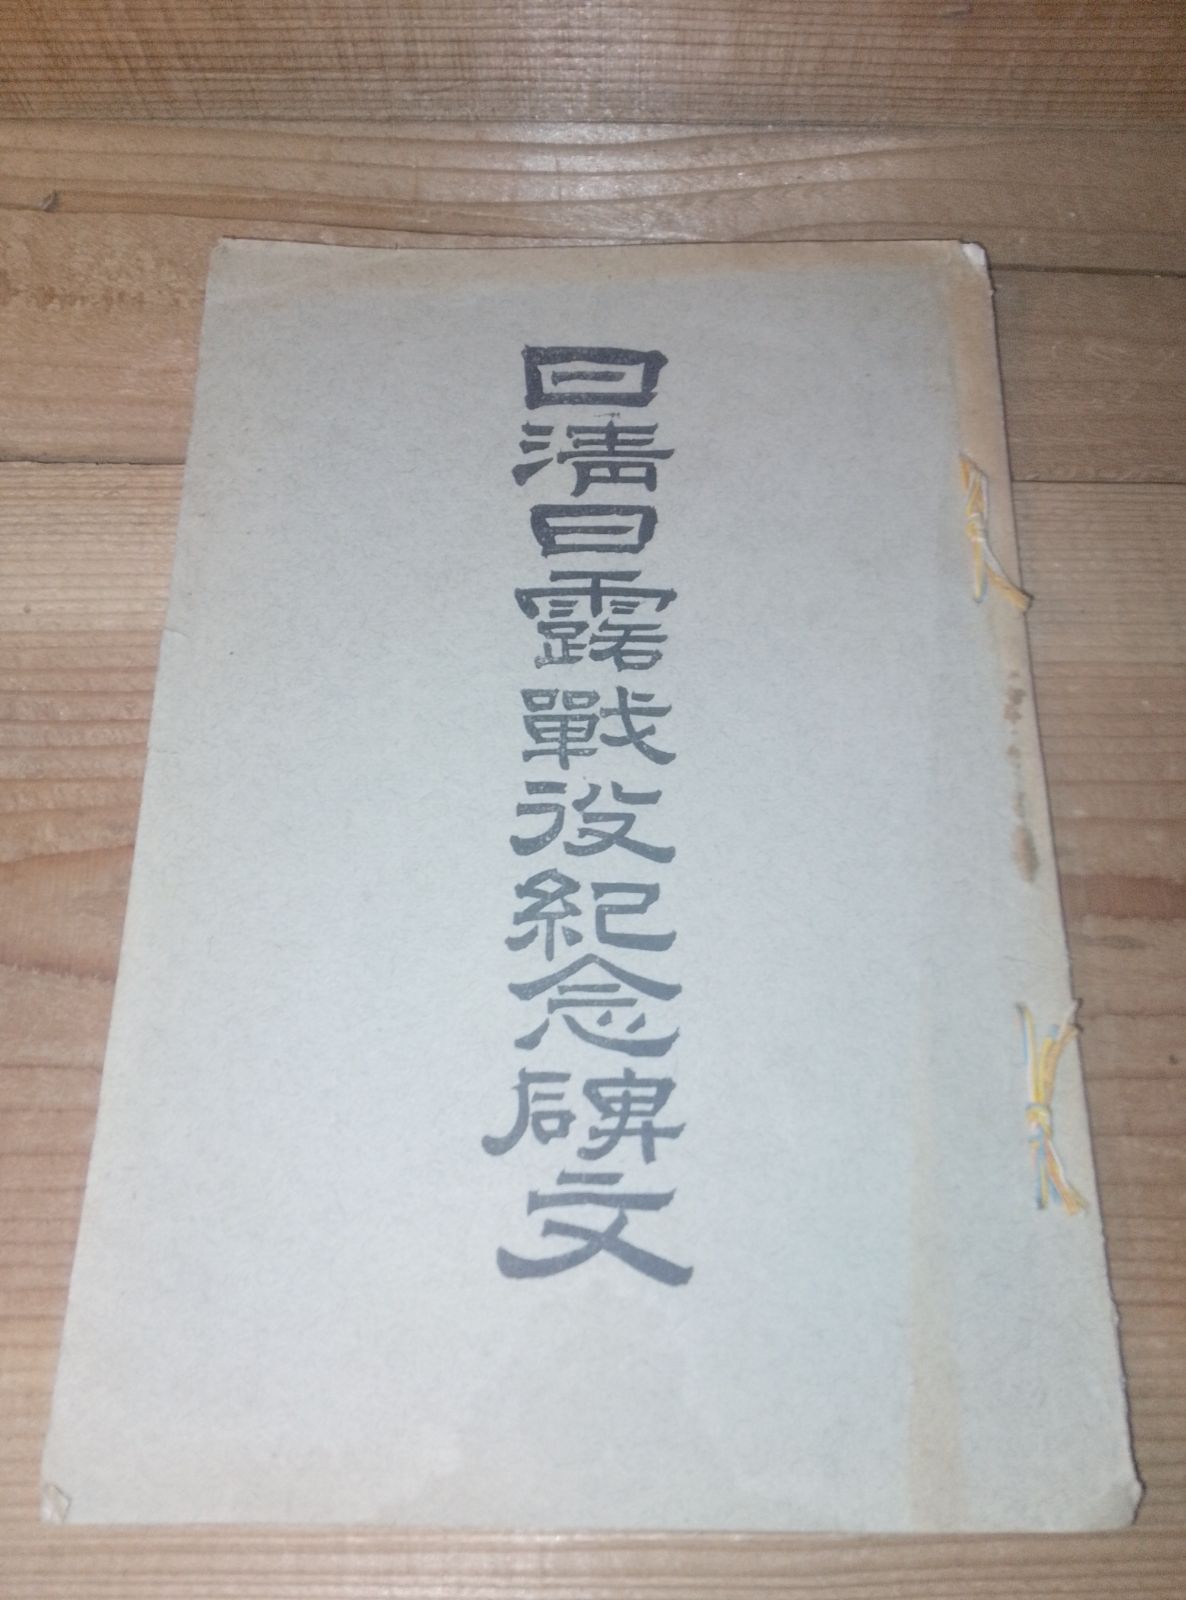 日清日露戰役紀念碑文